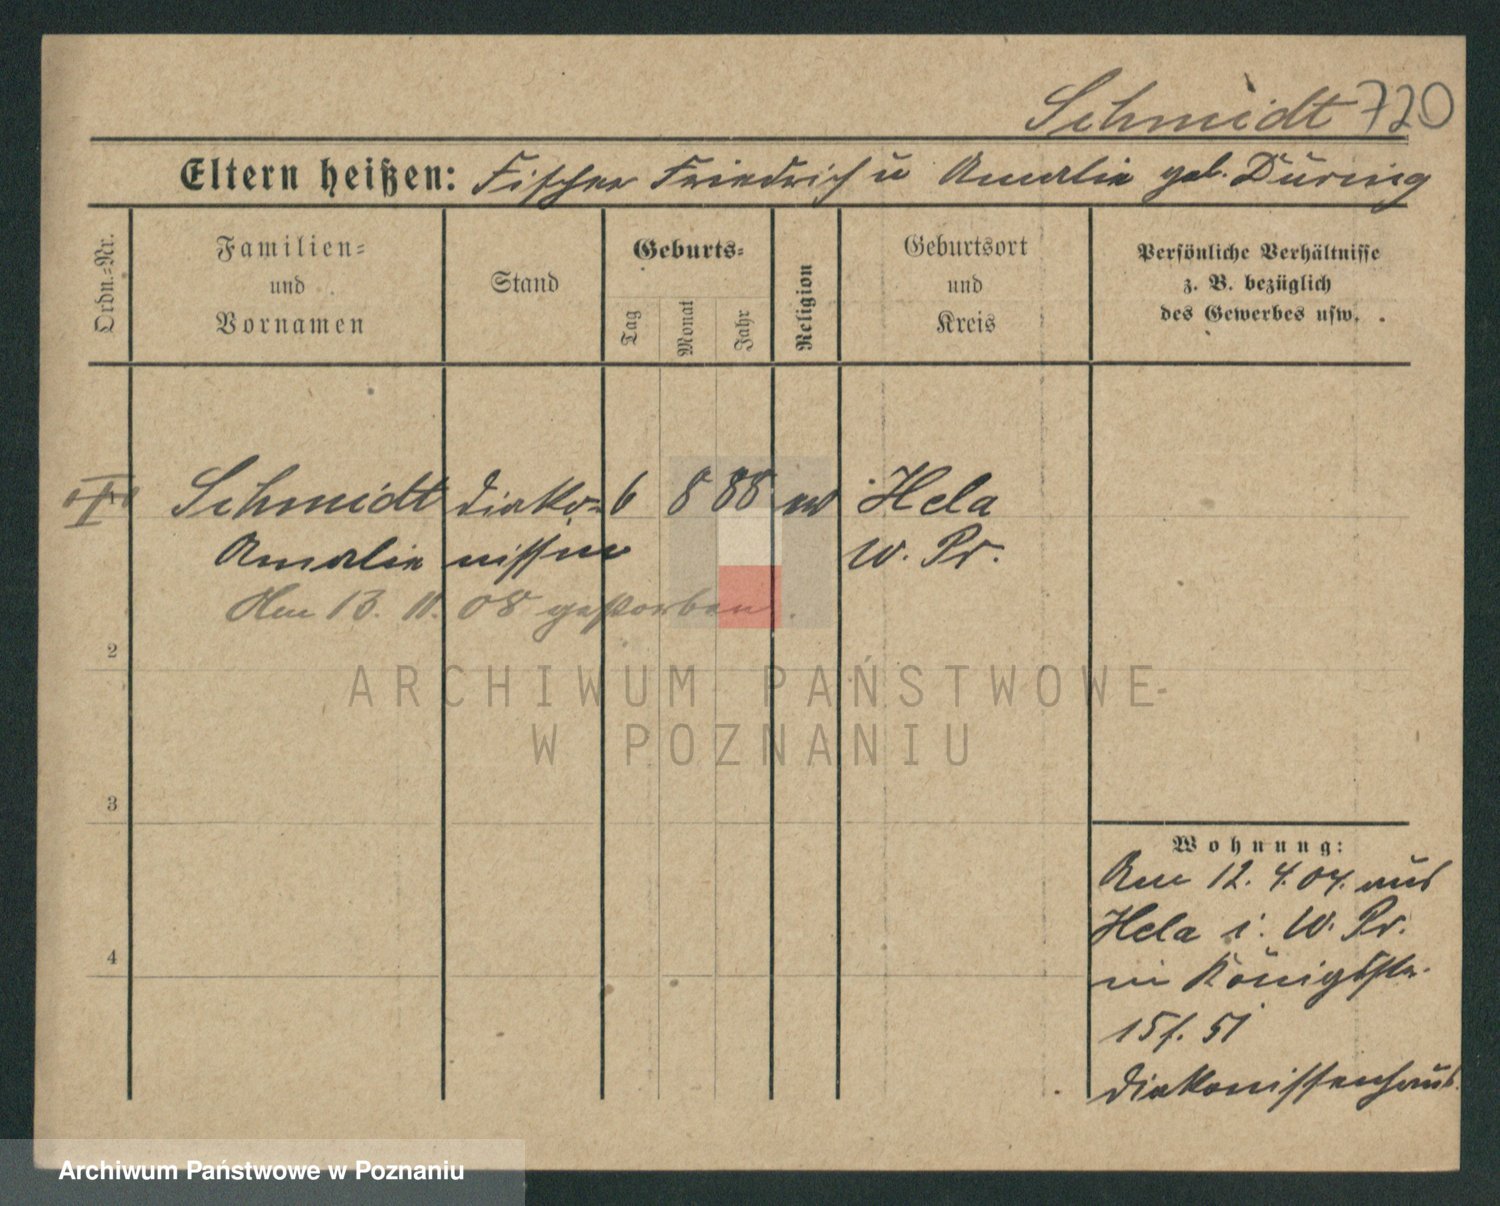 Schmidt 720
Eltern heißen: Fischer Friedrich u Amalie geb. Düring
Ordn.=Nr.
Familien=
und
Vornamen
Stand
Geburts=
Tag
Monat
Jahr
Religion
Geburtsort
und
Kreis
Persönliche Verhältnisse
z. B. bezüglich
des Gewerbes usw.
Schmidt Diako= 6 8 88 ev Hela
Amalie nissin W. Pr.
Am 13. 11. 08 gestorben.
2
3
4
Wohnung:
Am 12. 4. 07. aus
Hela i. W. Pr.
in Königstr.
15 f. 51
Diakonissenhaus.
ARCHIWUM PAŃSTWOWE
W POZNANIU
Archiwum Państwowe w Poznaniu